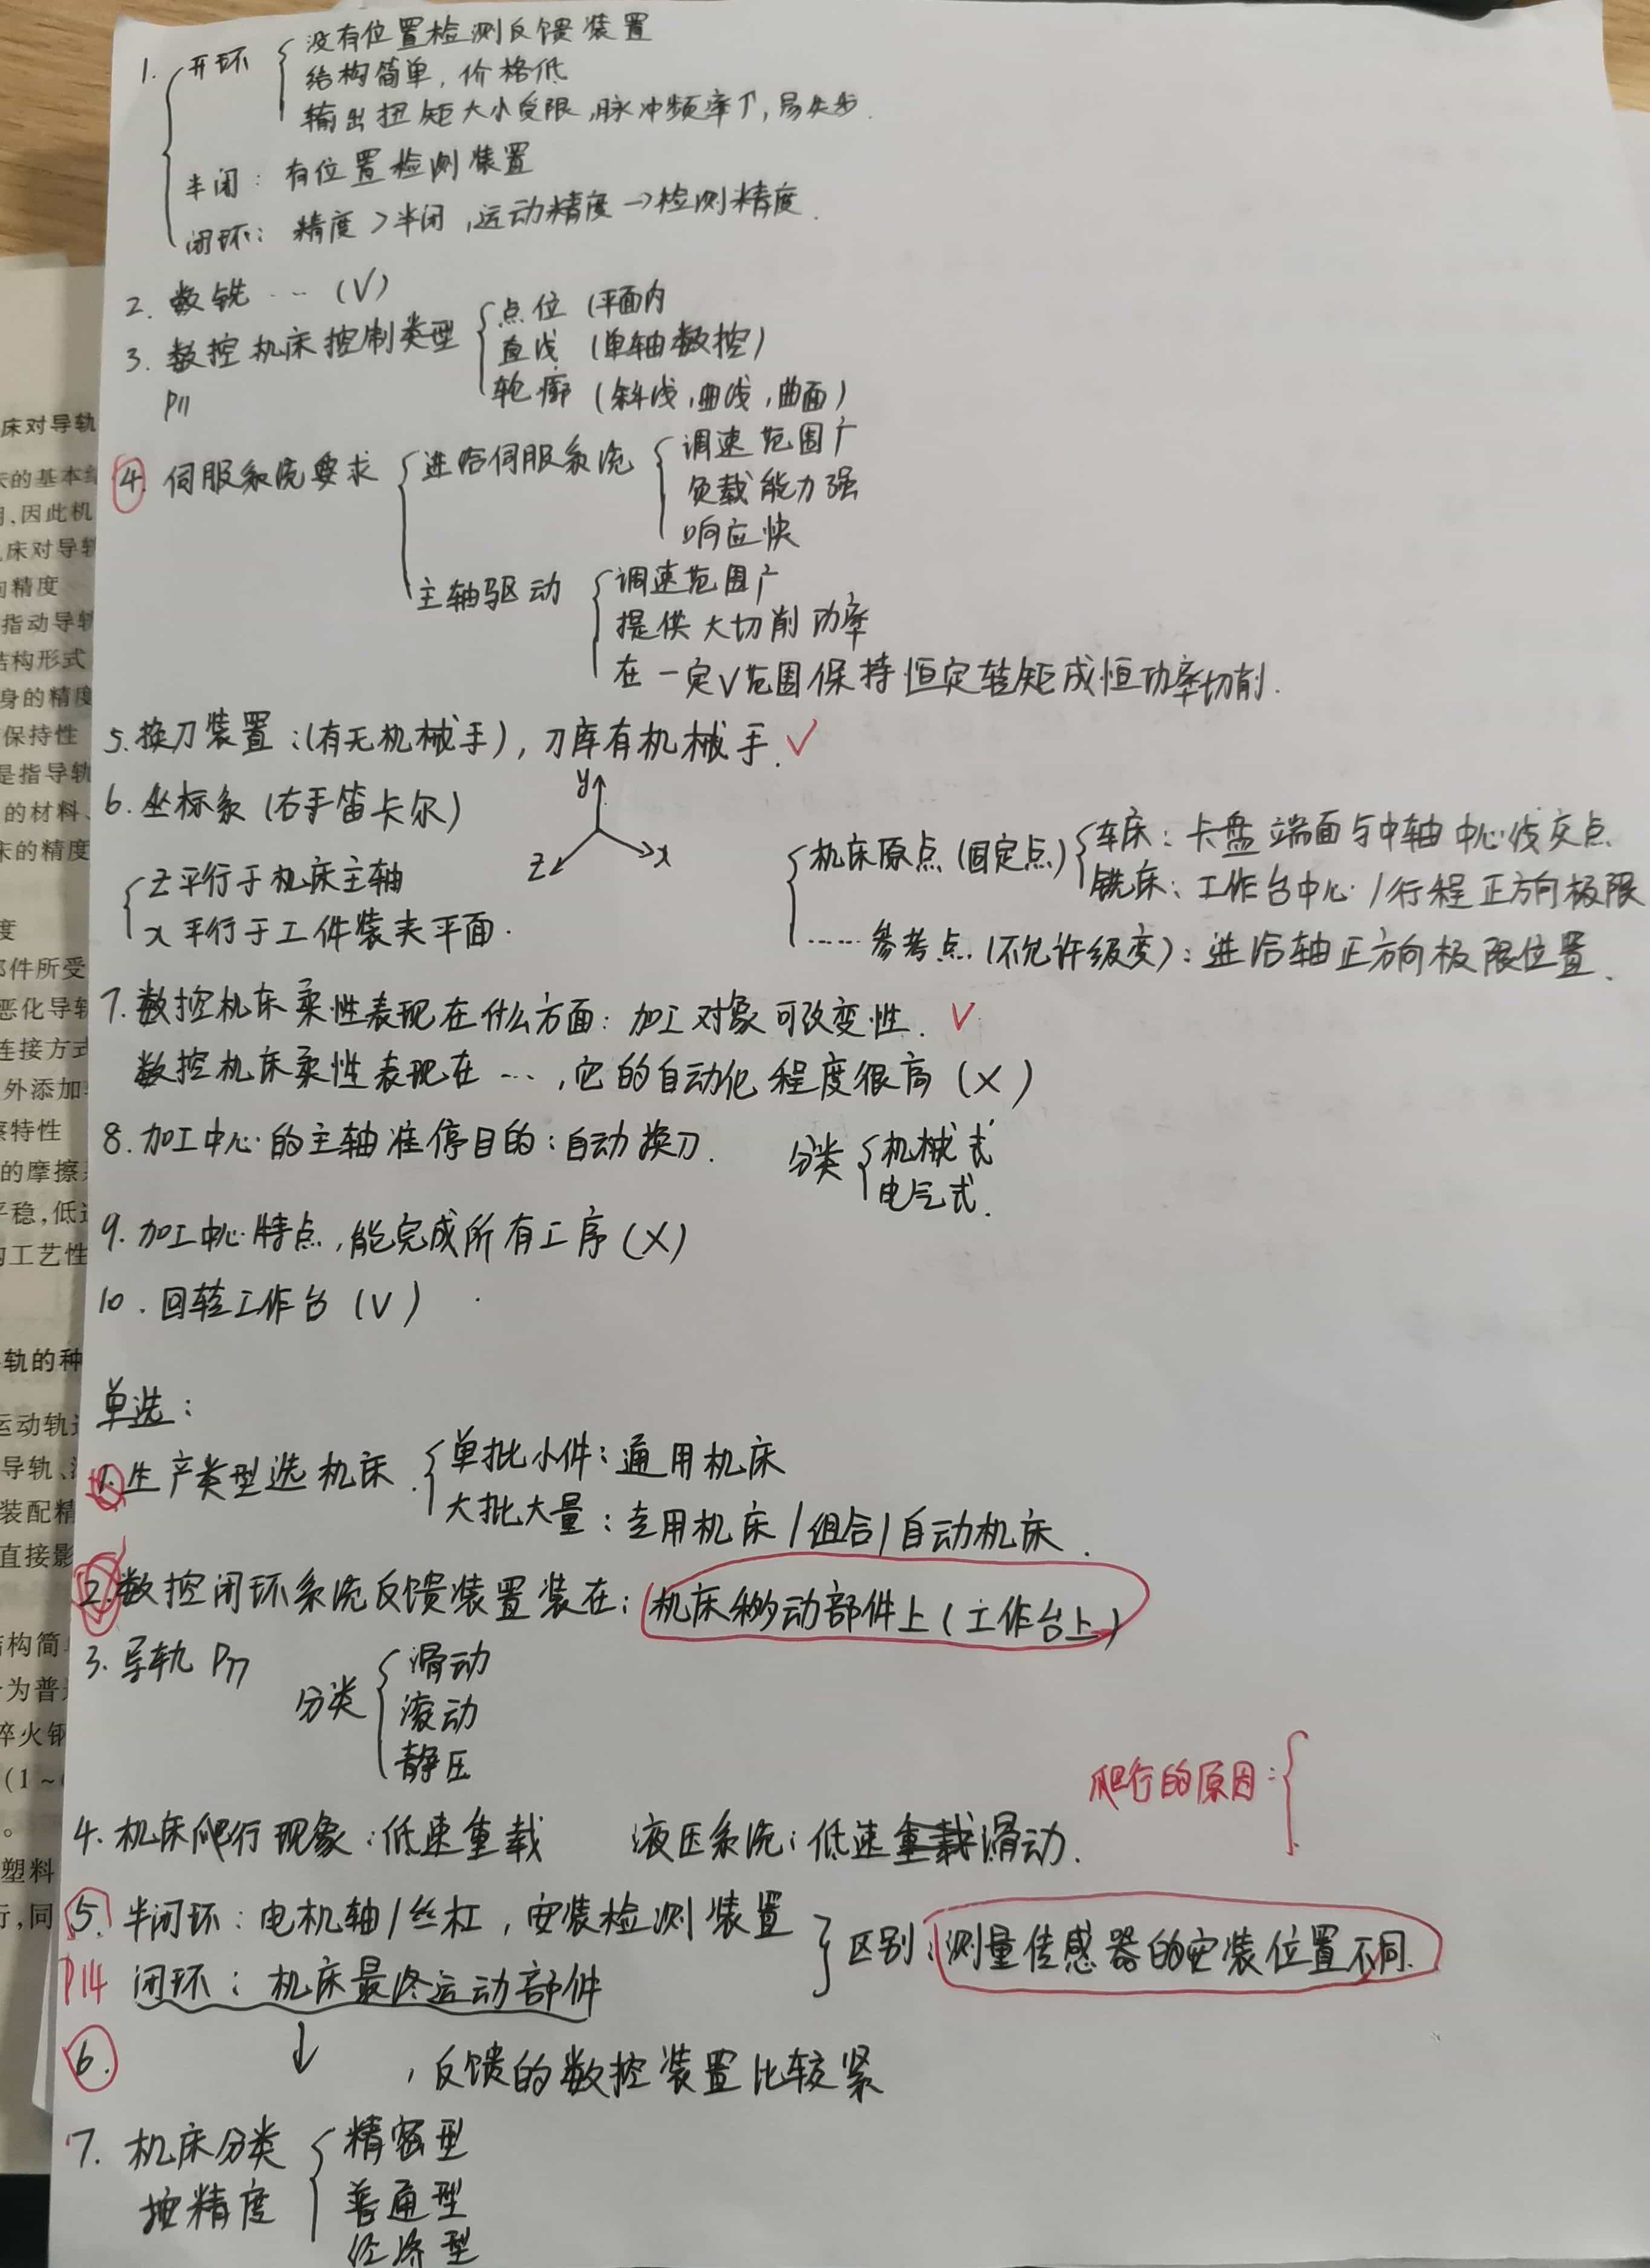 1. 开环 没有位置检测反馈装置
结构简单, 价格低
输出扭矩大小受限,脉冲频率↑,易失步.
半闭: 有位置检测装置
闭环: 精度>半闭,运动精度→检测精度.
2. 数铣 … (√)
3. 数控机床控制类型 点位 (平面内
直线 (单轴数控)
轮廓 (斜线,曲线,曲面)
P11
4. 伺服系统要求 进给伺服系统 调速范围广
负载能力强
响应快
主轴驱动 调速范围广
提供大切削功率
在一定V范围保持恒定转矩或恒功率切削.
5. 换刀装置:(有无机械手),刀库有机械手.√
6. 坐标系 (右手笛卡尔)
y
z x
Z平行于机床主轴
x平行于工件装夹平面.
机床原点(固定点) 车床: 卡盘端面与中轴中心线交点
铣床: 工作台中心/行程正方向极限
……参考点(不允许改变): 进给轴正方向极限位置.
7. 数控机床柔性表现在什么方面: 加工对象可改变性. √
数控机床柔性表现在 …,它的自动化程度很高 (X)
8. 加工中心的主轴准停目的:自动换刀. 分类 机械式
电气式.
9. 加工中心特点,能完成所有工序(X)
10. 回转工作台(√)
单选:
1. 生产类型选机床. 单批小件:通用机床
大批大量:专用机床/组合/自动机床.
2. 数控闭环系统反馈装置装在: 机床移动部件上(工作台上)
3. 导轨 P77 分类 滑动
滚动
静压
爬行的原因:
4. 机床爬行现象:低速重载 液压系统:低速重载滑动.
5. 半闭环: 电机轴/丝杠,安装检测装置
P14 闭环: 机床最终运动部件
区别: 测量传感器的安装位置不同.
6. ↓ ,反馈的数控装置比较紧
7. 机床分类 精密型
按精度 普通型
经济型
床对导轨
床的基本结
因此机
床对导轨
精度
指动导轨
结构形式
身的精度
保持性
是指导轨
的材料、
床的精度
度
部件所受
恶化导轨
连接方式
外添加
擦特性
的摩擦
平稳,低速
工艺性
轨的种
运动轨
导轨、
装配精
直接影
结构简
为普
淬火钢
(1~
塑料
行,同